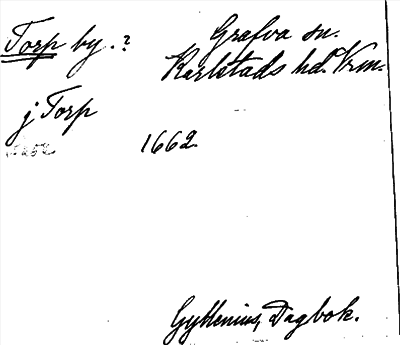 Torp by.? Grafva sn.
Karlstads hd. Vrm.
j Torp
1662.
Gyllenius, Dagbok.